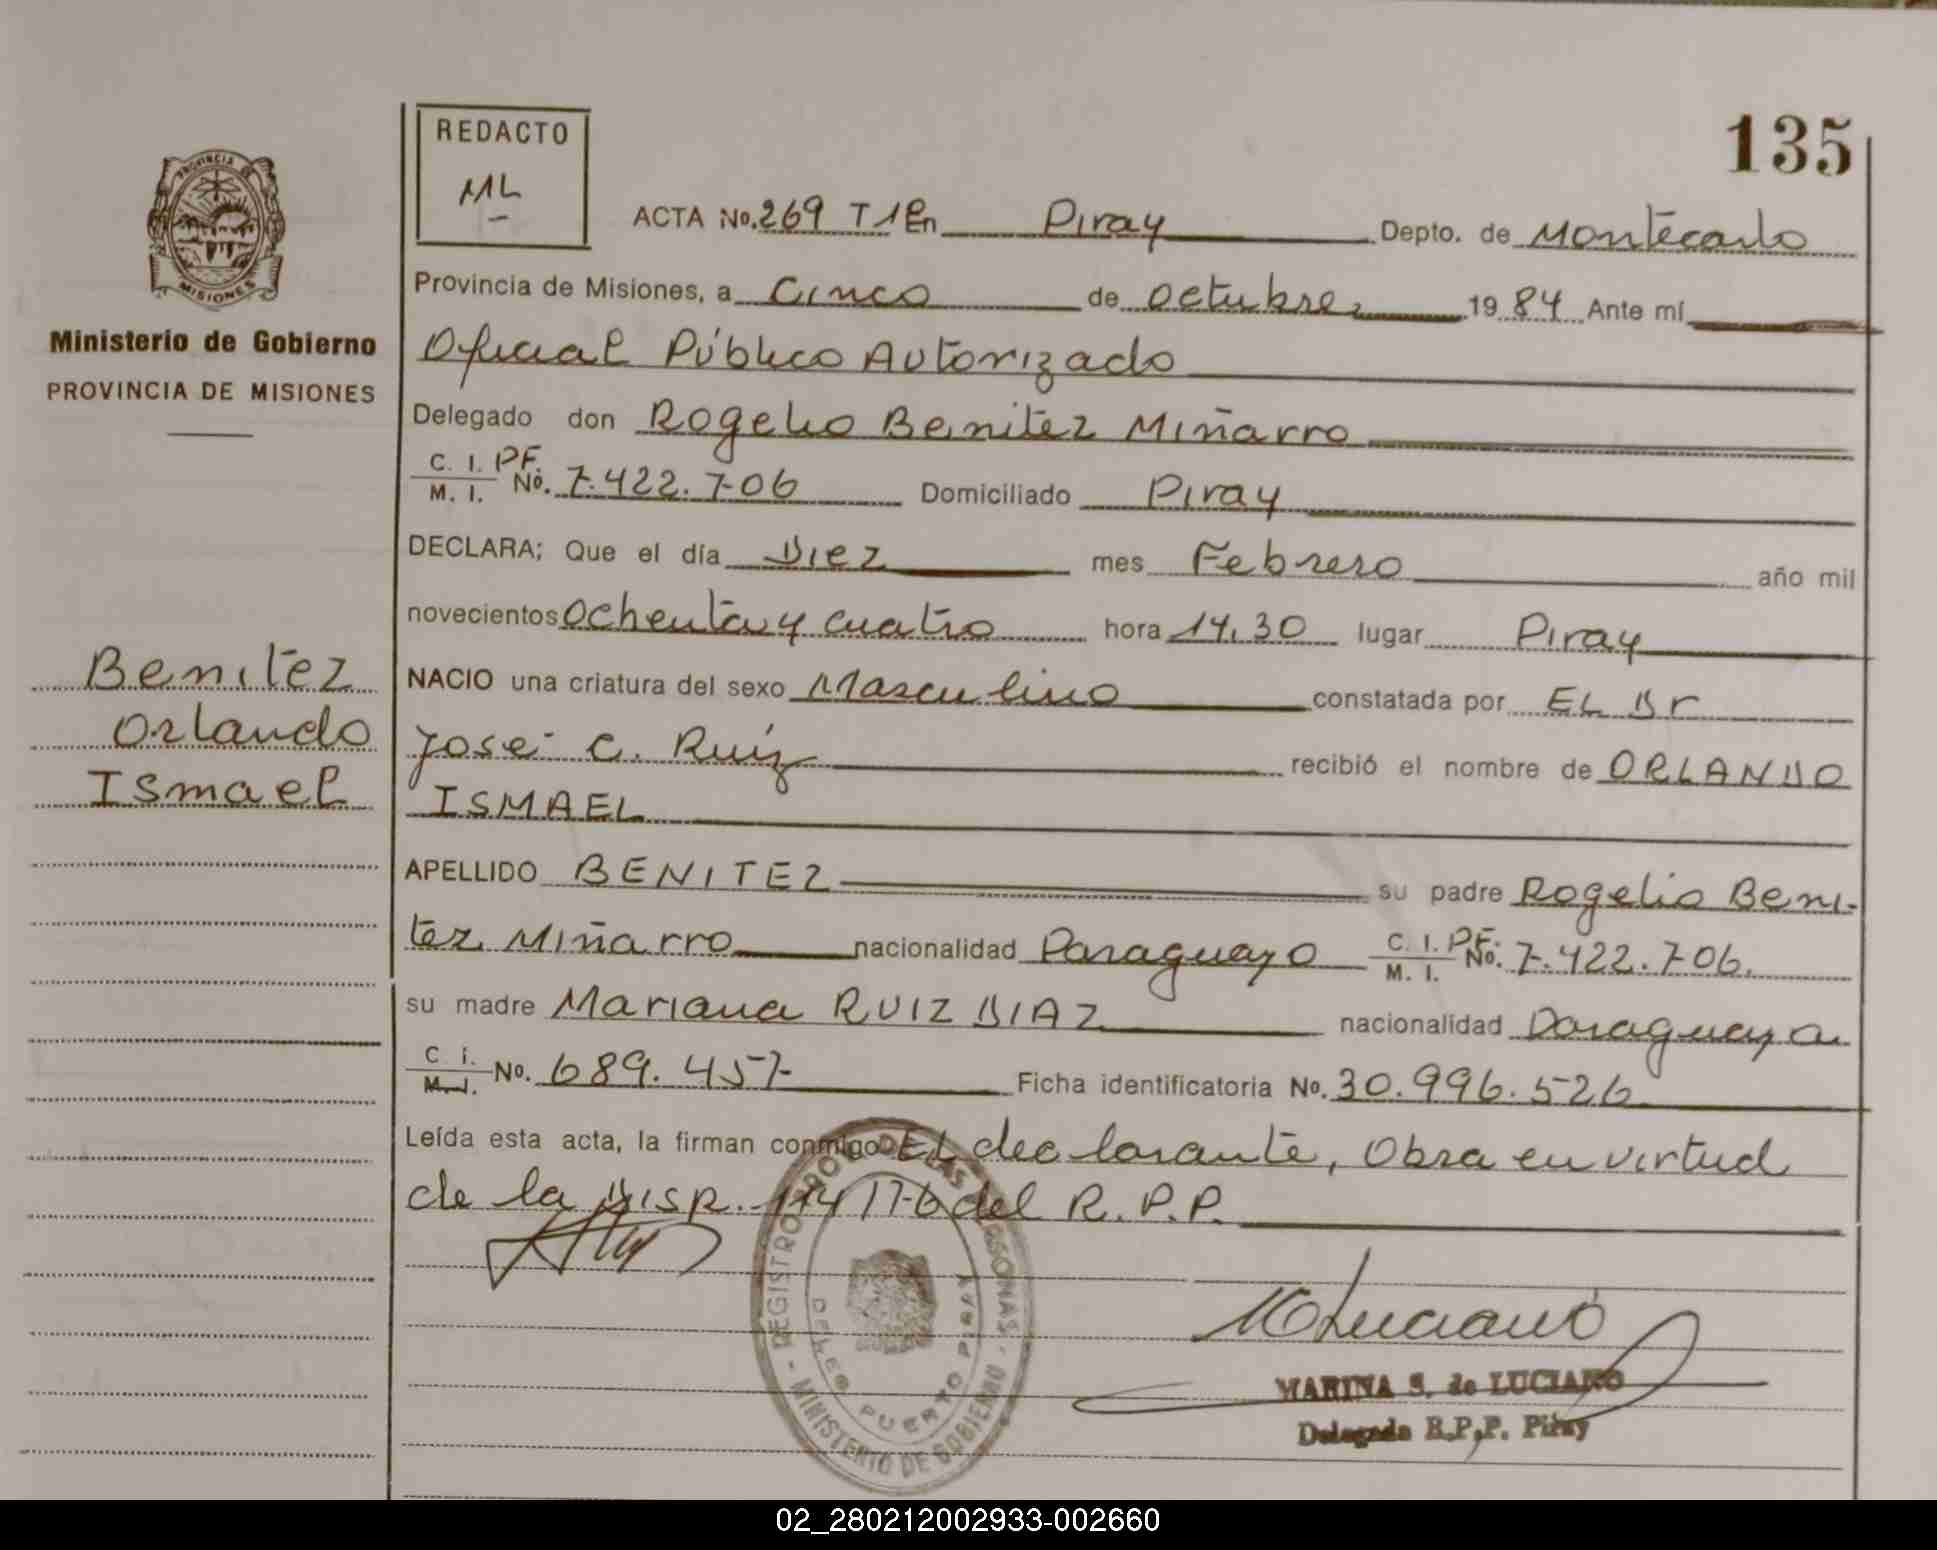 135
REDACTO
ML
PROVINCIA DE
MISIONES
Ministerio de Gobierno
PROVINCIA DE MISIONES
Benitez
Orlando
Ismael
ACTA No. 269 T1º En Piray Depto. de Montecarlo
Provincia de Misiones, a Cinco de octubre, 1984 Ante mí
Oficial Público Autorizado
Delegado don Rogelio Benitez Miñarro
C. I. M. I. PF. No. 7.422.706 Domiciliado Piray
DECLARA; Que el día Diez mes Febrero año mil
novecientos ochenta y cuatro hora 14,30 lugar Piray
NACIO una criatura del sexo Masculino constatada por EL Dr
José C. Ruíz recibió el nombre de ORLANDO
ISMAEL
APELLIDO BENITEZ su padre Rogelio Beni-
tez Miñarro nacionalidad Paraguayo C. I. M. I. PF. No. 7.422.706.
su madre Mariana RUIZ DIAZ nacionalidad Paraguaya
C. i. M. I. No. 689.457 Ficha identificatoria No. 30.996.526
Leída esta acta, la firman conmigo EL declarante, Obra en virtud
de la DISP. 174/76 del R.P.P.
REGISTRO DE LAS PERSONAS - MINISTERIO DE GOBIERNO -
PUERTO PIRAY
MLuciano
MARINA S. de LUCIANO
Delegada R.P.P. Piray
02_280212002933-002660